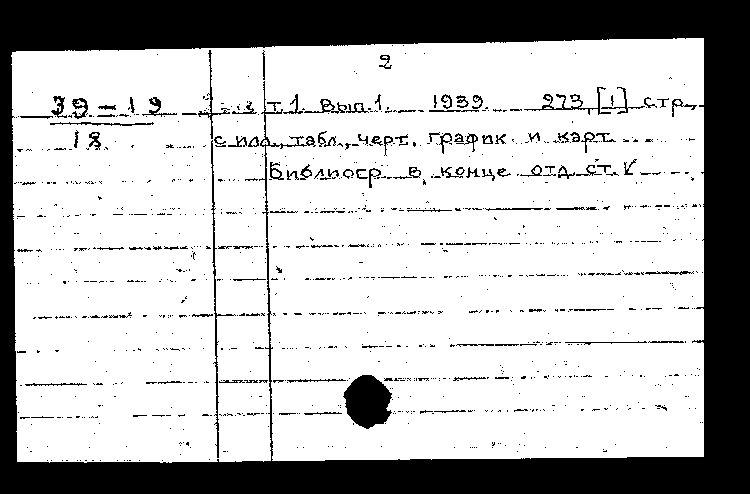 2
39-19 т.1. Вып.1. 1939. 273, [1] стр.,
18 с илл., табл., черт. график. и карт.
Библиогр. в конце отд. ст. V